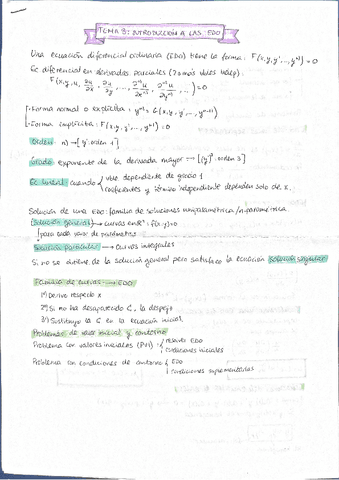 TEMA 8: INTRODUCCIÓN A LAS EDO
Una ecuación diferencial ordinaria (EDO) tiene la forma: F(x,y,y',...,yⁿ⁾)=0
Ec diferencial en derivadas parciales (2 o más vbles indep):
F(x,y,u, ∂u/∂x, ∂u/∂y, ..., ∂ⁿu/∂xⁿ, ∂ⁿu/∂yⁿ)=0
Forma normal o explícita: yⁿ⁾ = G(x,y,y',...,yⁿ⁻¹⁾)
Forma implícita: F(x,y,y',...,yⁿ⁾)=0
Orden: n) → [y': orden 1]
Grado: exponente de la derivada mayor → [(y')³: orden 3]
Ec lineal cuando vble dependiente de grado 1
coeficientes y término independiente dependen solo de x.
Solución de una EDO: familia de soluciones uniparamétrica/n-paramétrica.
Solución general → curvas en R²: f(x,y)=0
para cada valor de parámetros
Solución particular → curvas integrales
Si no se obtiene de la solución general pero satisface la ecuación solución singular
Familia de curvas → EDO
1º) Derivo respecto x
2º) Si no ha desaparecido C, la despejo
3º) Sustituyo la C en la ecuación inicial
Problemas de valor inicial y contorno
Problema con valores iniciales (PVI) → resuelve EDO
condiciones iniciales
Problema con condiciones de contorno → EDO
condiciones suplementarias